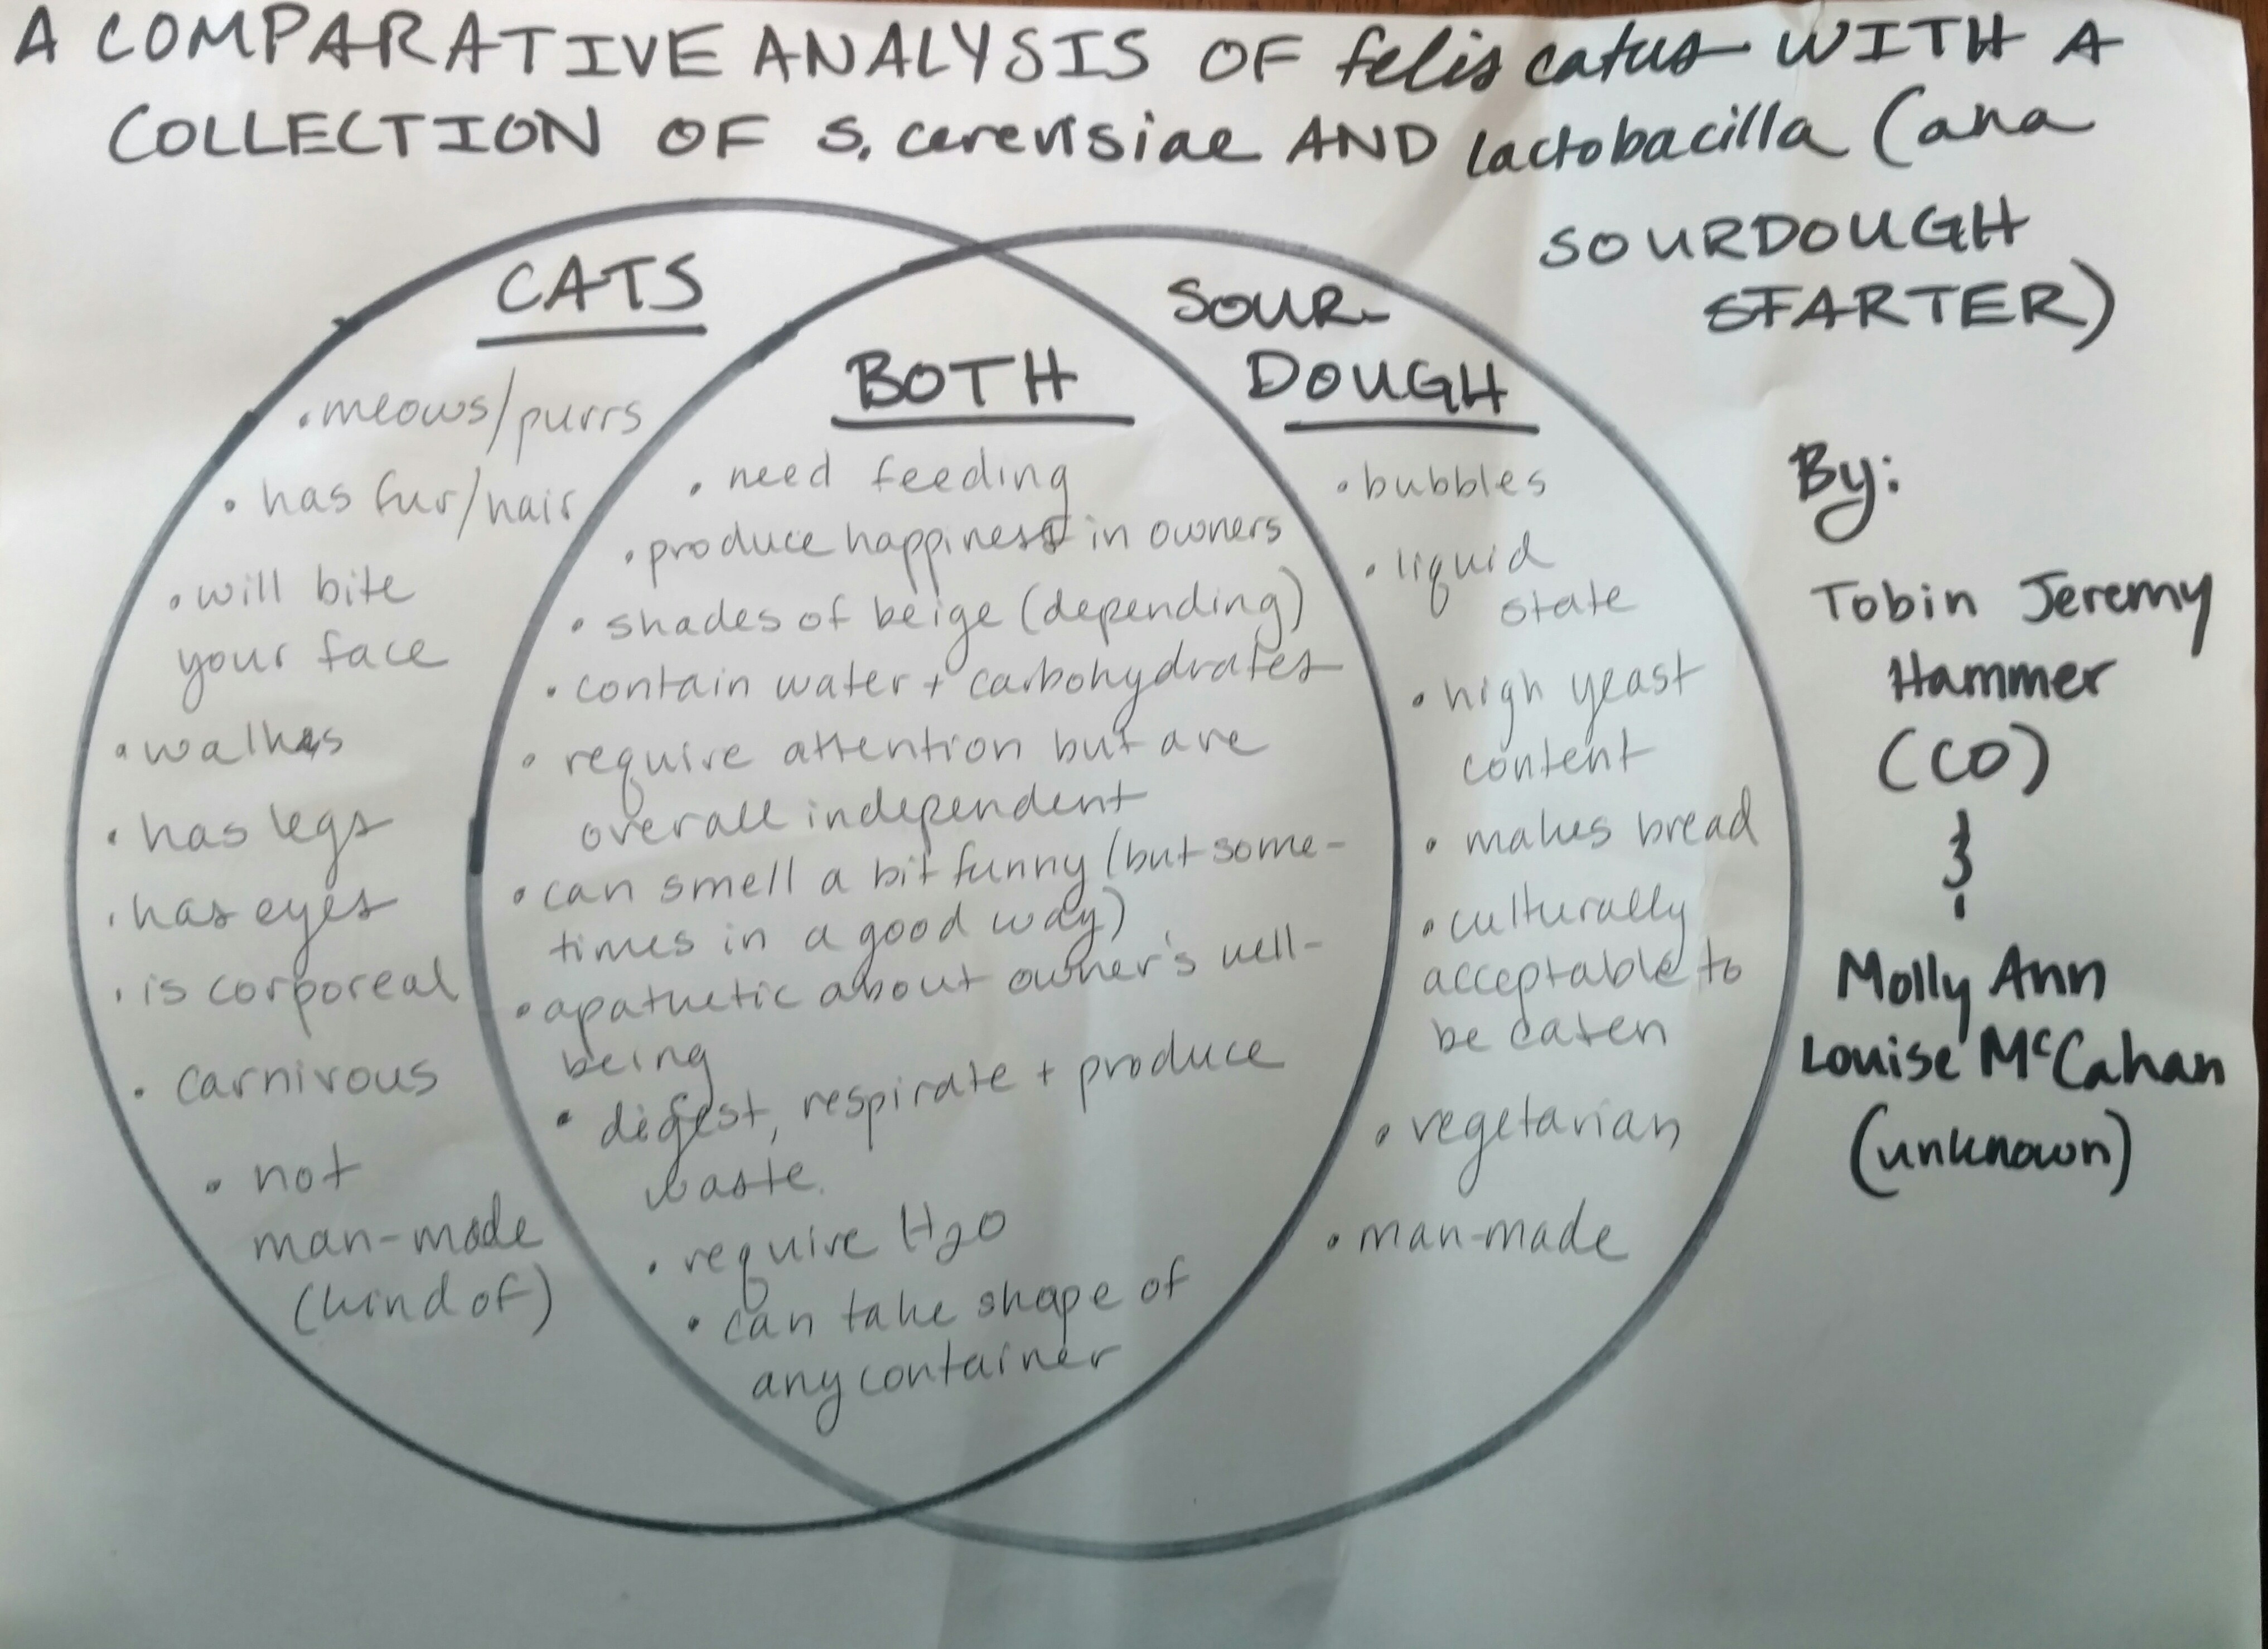 A COMPARATIVE ANALYSIS OF felis catus WITH A
COLLECTION OF S. cerevisiae AND lactobacilla (ana
SOURDOUGH
STARTER)
CATS
• meows/purrs
• has fur/hair
• will bite
your face
• walks
• has legs
• has eyes
• is corporeal
• carnivous
• not
man-made
(kind of)
BOTH
• need feeding
• produce happiness in owners
• shades of beige (depending)
• contain water + carbohydrates
• require attention but are
overall independent
• can smell a bit funny (but some-
times in a good way)
• apathetic about owner's well-
being
• digest, respirate + produce
waste.
• require H2O
• can take shape of
any container
SOUR-
DOUGH
• bubbles
• liquid
state
• high yeast
content
• makes bread
• culturally
acceptable to
be eaten
• vegetarian
• man-made
By:
Tobin Jeremy
Hammer
(CO)
&
Molly Ann
Louise McCahan
(unknown)